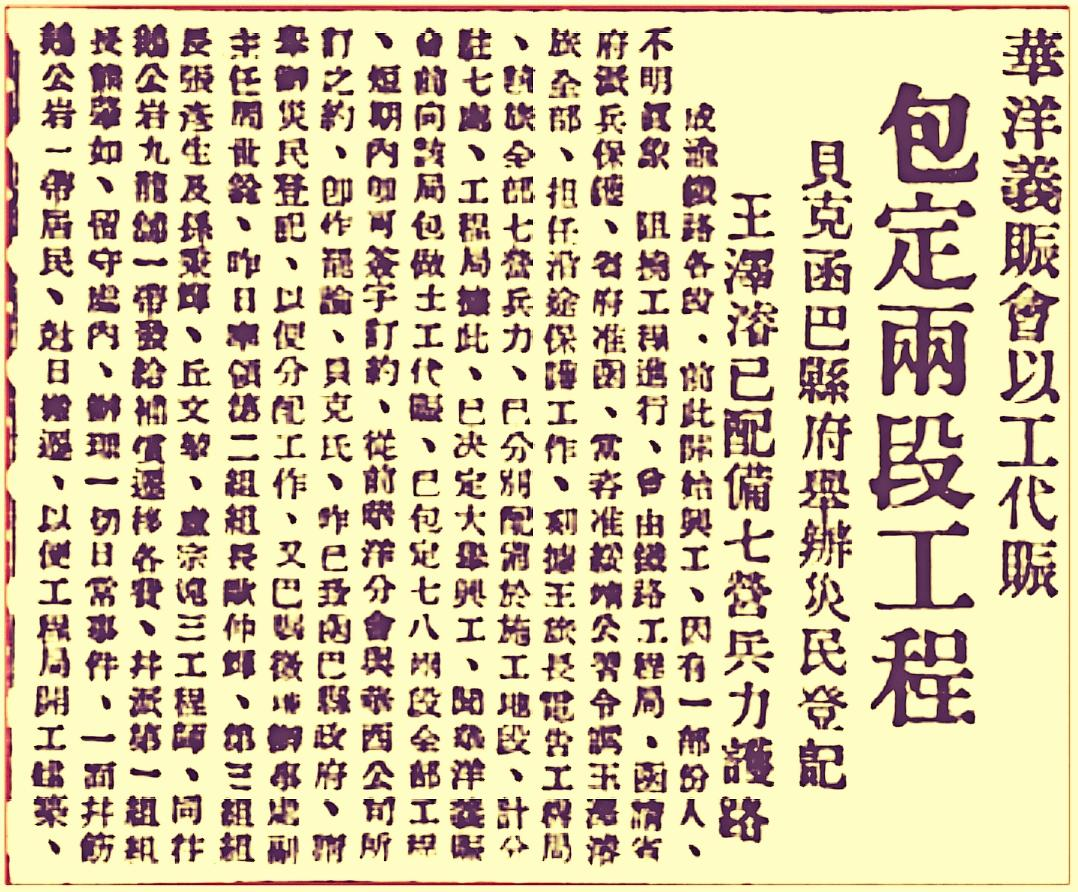 華洋義賑會以工代賑
包定兩段工程
貝克函巴縣府舉辦災民登記
王澤濬已配備七營兵力護路
成渝鐵路各段、前此開始興工、因有一部份人、
不明真象 阻撓工程進行、曾由鐵路工程局、函請省
府派兵保護、省府准函、當咨准綏靖公署令調王澤濬
旅全部、担任沿途保護工作、刻據王旅長電告工程局
、該旅全部七營兵力、已分別配備於施工地段、計分
駐七處、工程局據此、已決定大舉興工、聞華洋義賑
會前向該局包做土工代賑、已包定七八兩段全部工程
、短期內即可簽字訂約、從前華洋分會與華西公司所
訂之約、卽作罷論、貝克氏、昨已致函巴縣政府、
舉辦災民登記、以便分配工作、又巴縣徵地辦事處副
主任周世銓、昨日率領第二組組長歐仲輝、第三組組
長張彥生及孫 、丘文 、盧宗 三工程師、同往
鵝公岩九龍舖一帶發給補償遷移各費、并派第一組組
長 如、留守處內、辦理一切日常事件、一面井飭
鵝公岩一帶居民、尅日搬遷、以便工程局開工建築、